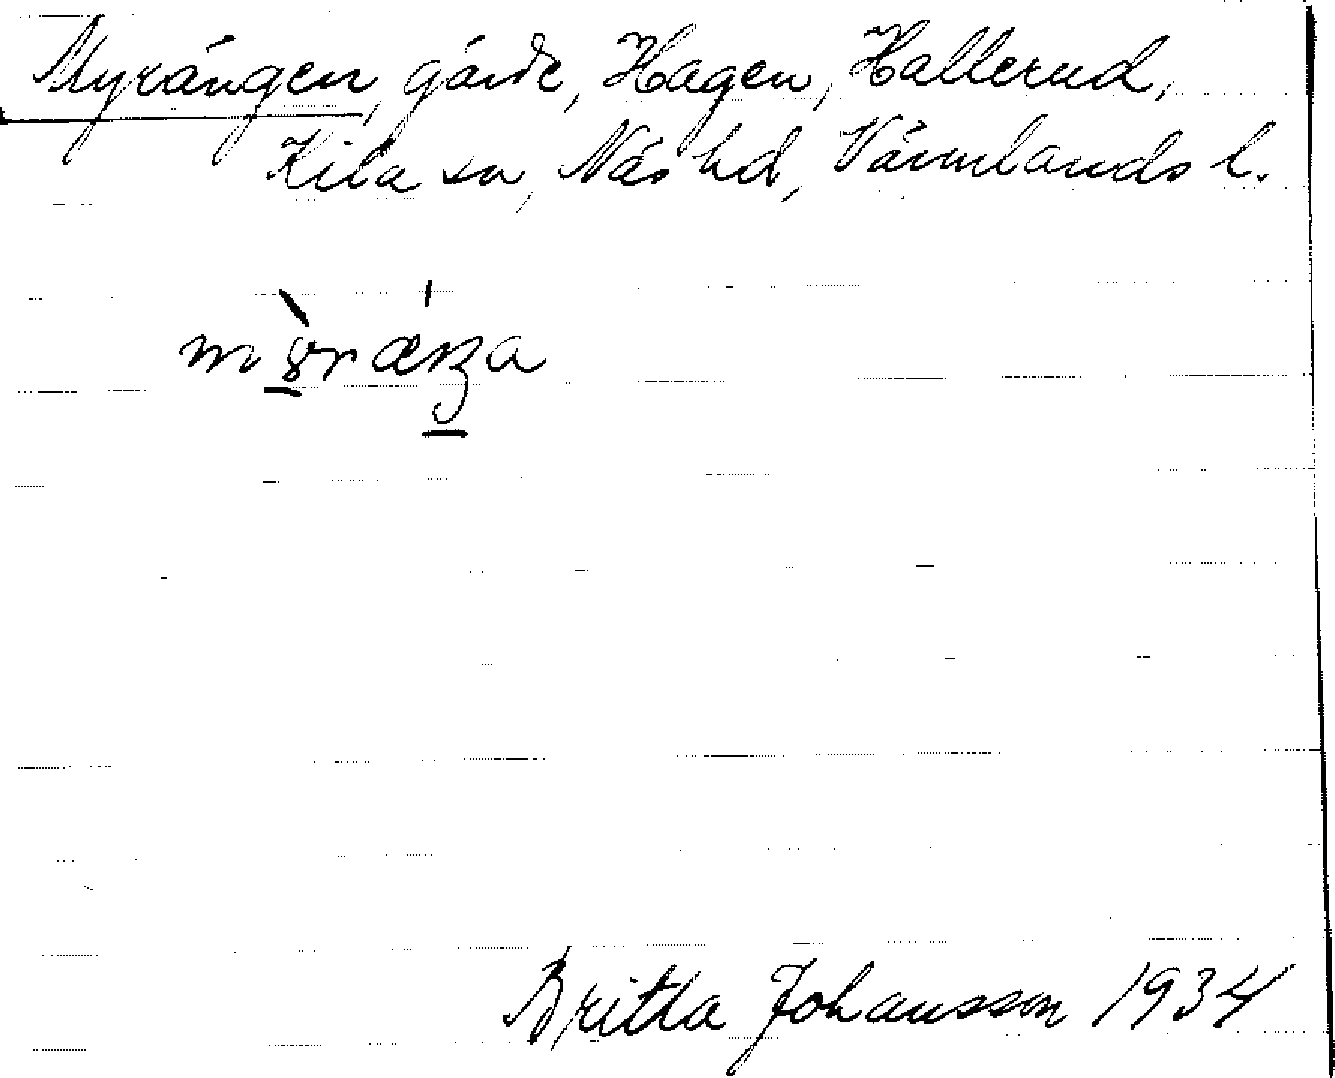 Myrängen, gärde, Hagen, Hallerud,
Kila sn, Näs hd, Värmlands l.
Britta Johansson 1934